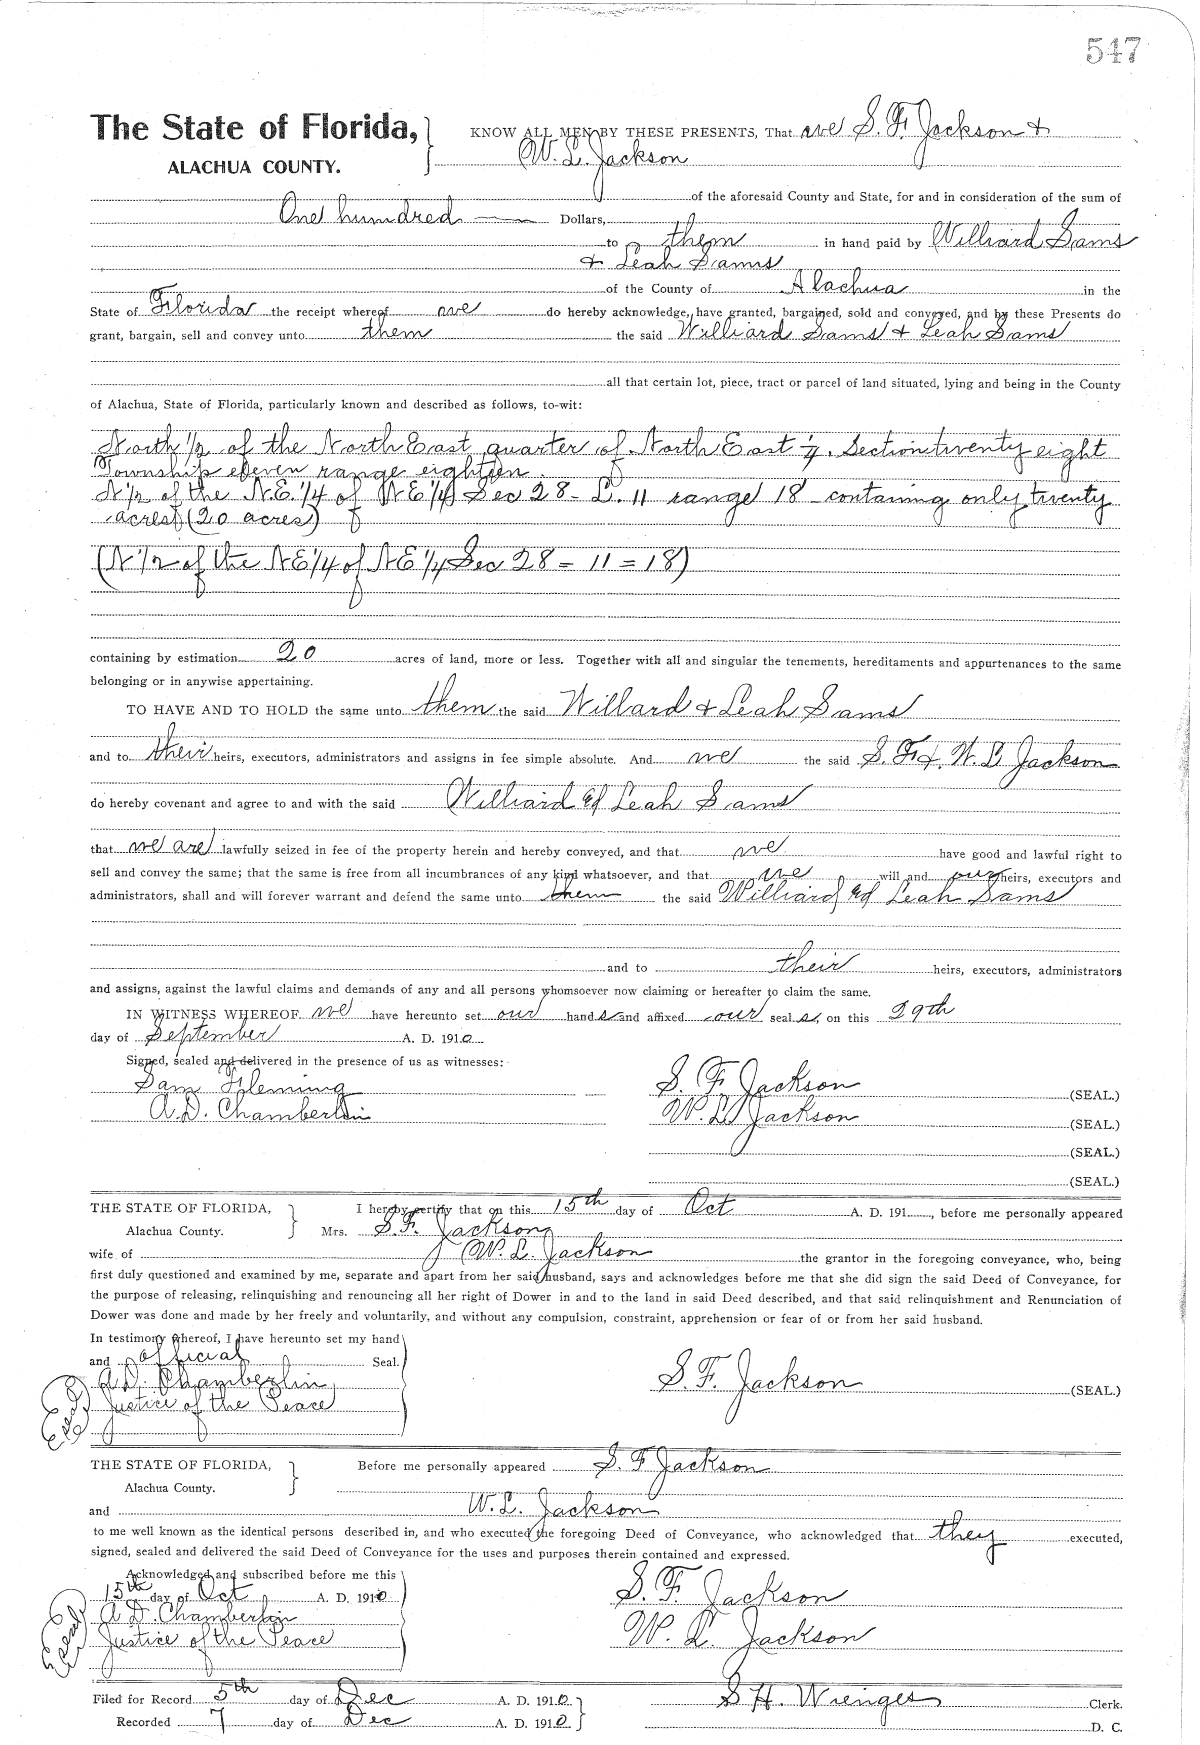 547
The State of Florida, KNOW ALL MEN BY THESE PRESENTS, That we S. F. Jackson &
ALACHUA COUNTY. W. L. Jackson
of the aforesaid County and State, for and in consideration of the sum of
One hundred Dollars,
to them in hand paid by Williard Sams
& Leah Sams
of the County of Alachua in the
State of Florida the receipt whereof we do hereby acknowledge, have granted, bargained, sold and conveyed, and by these Presents do
grant, bargain, sell and convey unto them the said Williard Sams & Leah Sams
all that certain lot, piece, tract or parcel of land situated, lying and being in the County
of Alachua, State of Florida, particularly known and described as follows, to-wit:
North 1/2 of the North East quarter of North East 1/4. Section twenty eight
Township eleven range eighteen.
N 1/2 of the N.E. 1/4 of N E 1/4 Sec 28 - L. 11 range 18 - containing only twenty
acres (20 acres)
(N 1/2 of the N E 1/4 of N E 1/4 Sec 28 = 11 = 18)
containing by estimation 20 acres of land, more or less. Together with all and singular the tenements, hereditaments and appurtenances to the same
belonging or in anywise appertaining.
TO HAVE AND TO HOLD the same unto them the said Willard & Leah Sams
and to their heirs, executors, administrators and assigns in fee simple absolute. And we the said S. F. & W. L Jackson
do hereby covenant and agree to and with the said Williard & Leah Sams
that we are lawfully seized in fee of the property herein and hereby conveyed, and that we have good and lawful right to
sell and convey the same; that the same is free from all incumbrances of any kind whatsoever, and that we will and our heirs, executors and
administrators, shall and will forever warrant and defend the same unto them the said Williard & Leah Sams
and to their heirs, executors, administrators
and assigns, against the lawful claims and demands of any and all persons whomsoever now claiming or hereafter to claim the same.
IN WITNESS WHEREOF we have hereunto set our hands and affixed our seals, on this 29th
day of September A. D. 1910
Signed, sealed and delivered in the presence of us as witnesses:
Sam Fleming S. F. Jackson (SEAL.)
A. D. Chamberlin W. L. Jackson (SEAL.)
(SEAL.)
(SEAL.)
THE STATE OF FLORIDA, I hereby certify that on this 15th day of Oct A. D. 191 , before me personally appeared
Alachua County. Mrs. S. F. Jackson
wife of W. L. Jackson the grantor in the foregoing conveyance, who, being
first duly questioned and examined by me, separate and apart from her said husband, says and acknowledges before me that she did sign the said Deed of Conveyance, for
the purpose of releasing, relinquishing and renouncing all her right of Dower in and to the land in said Deed described, and that said relinquishment and Renunciation of
Dower was done and made by her freely and voluntarily, and without any compulsion, constraint, apprehension or fear of or from her said husband.
In testimony whereof, I have hereunto set my hand
and official Seal.
A. D. Chamberlin S. F. Jackson (SEAL.)
Justice of the Peace
Seal
THE STATE OF FLORIDA, Before me personally appeared S. F Jackson
Alachua County.
and W. L. Jackson
to me well known as the identical persons described in, and who executed the foregoing Deed of Conveyance, who acknowledged that they executed,
signed, sealed and delivered the said Deed of Conveyance for the uses and purposes therein contained and expressed.
Acknowledged and subscribed before me this
15th day of Oct A. D. 1910 S. F. Jackson
A. D. Chamberlin W. L. Jackson
Justice of the Peace
Seal
Filed for Record 5th day of Dec A. D. 1910 S. H. Wienges Clerk.
Recorded 7 day of Dec A. D. 1910 D. C.